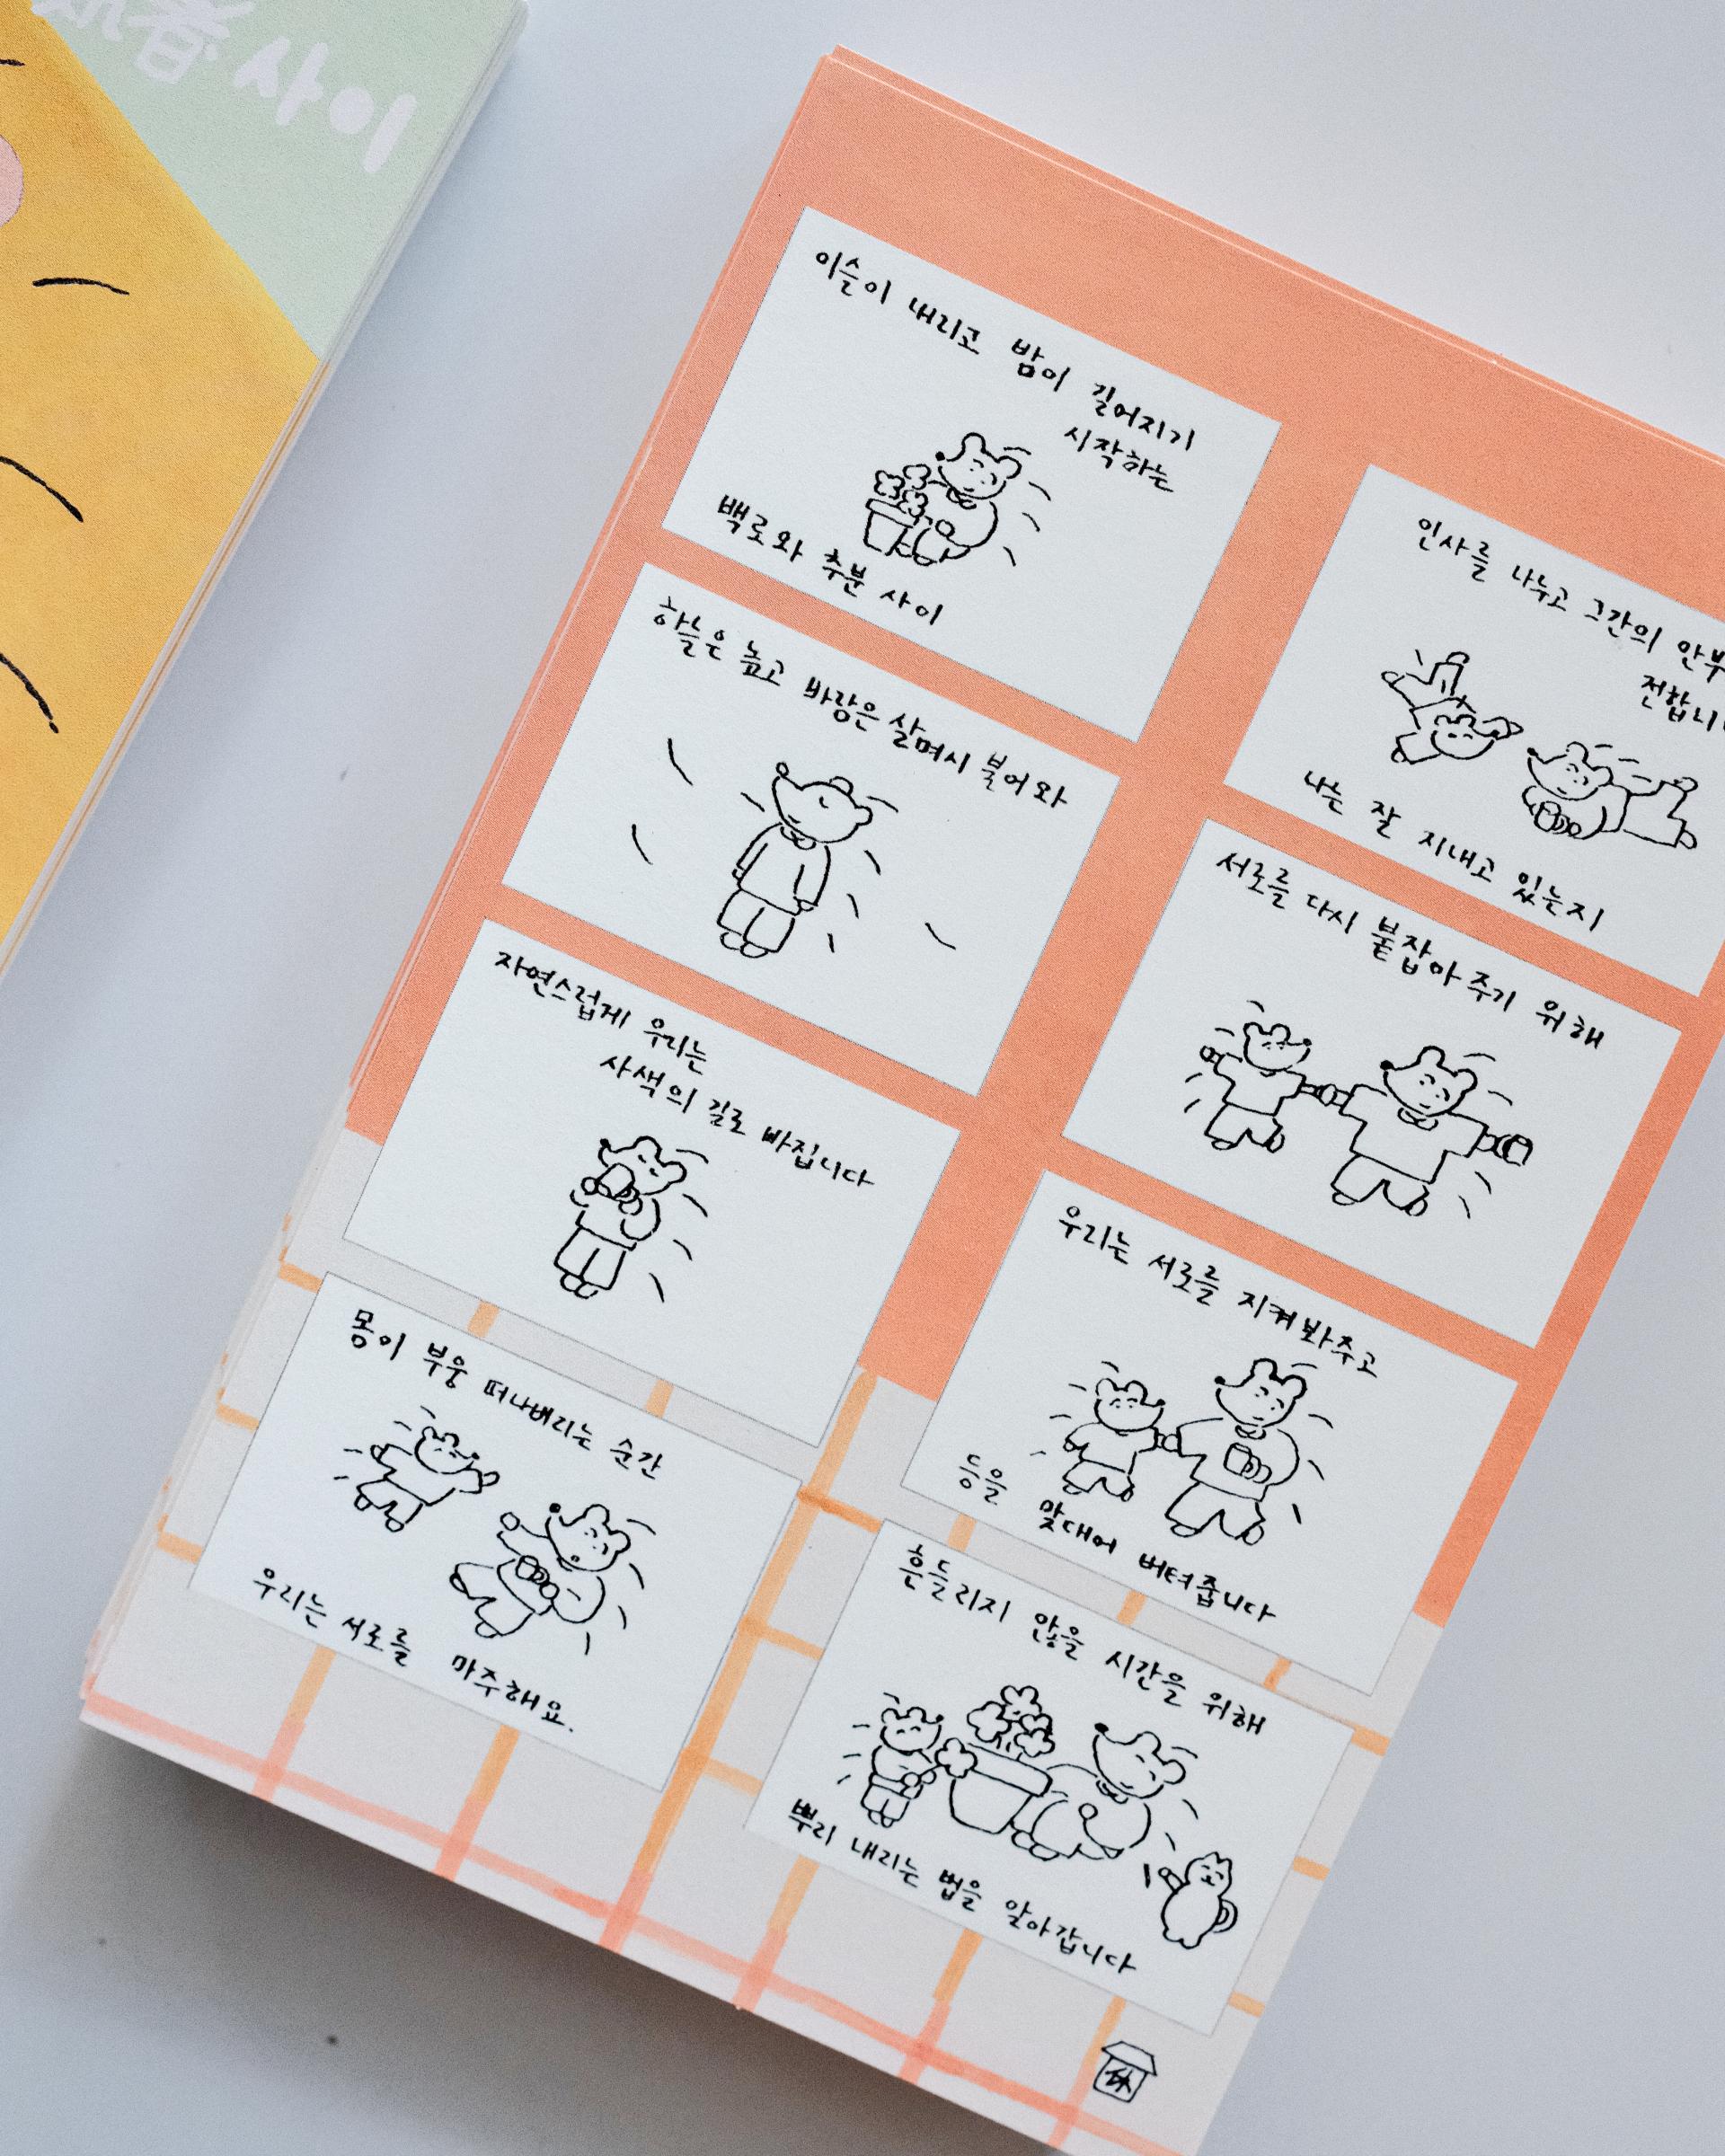 사이
이슬이 내리고 밤이 길어지기
시작하는
백로와 추분 사이
하늘은 높고 바람은 살며시 불어와
자연스럽게 우리는
사색의 길로 빠집니다
몸이 부웅 떠나버리는 순간
우리는 서로를 마주해요.
인사를 나누고 그간의 안부
전합니
나는 잘 지내고 있는지
서로를 다시 붙잡아 주기 위해
우리는 서로를 지켜봐주고
등을 맞대어 버텨줍니다
흔들리지 않을 시간을 위해
뿌리 내리는 법을 알아갑니다
休